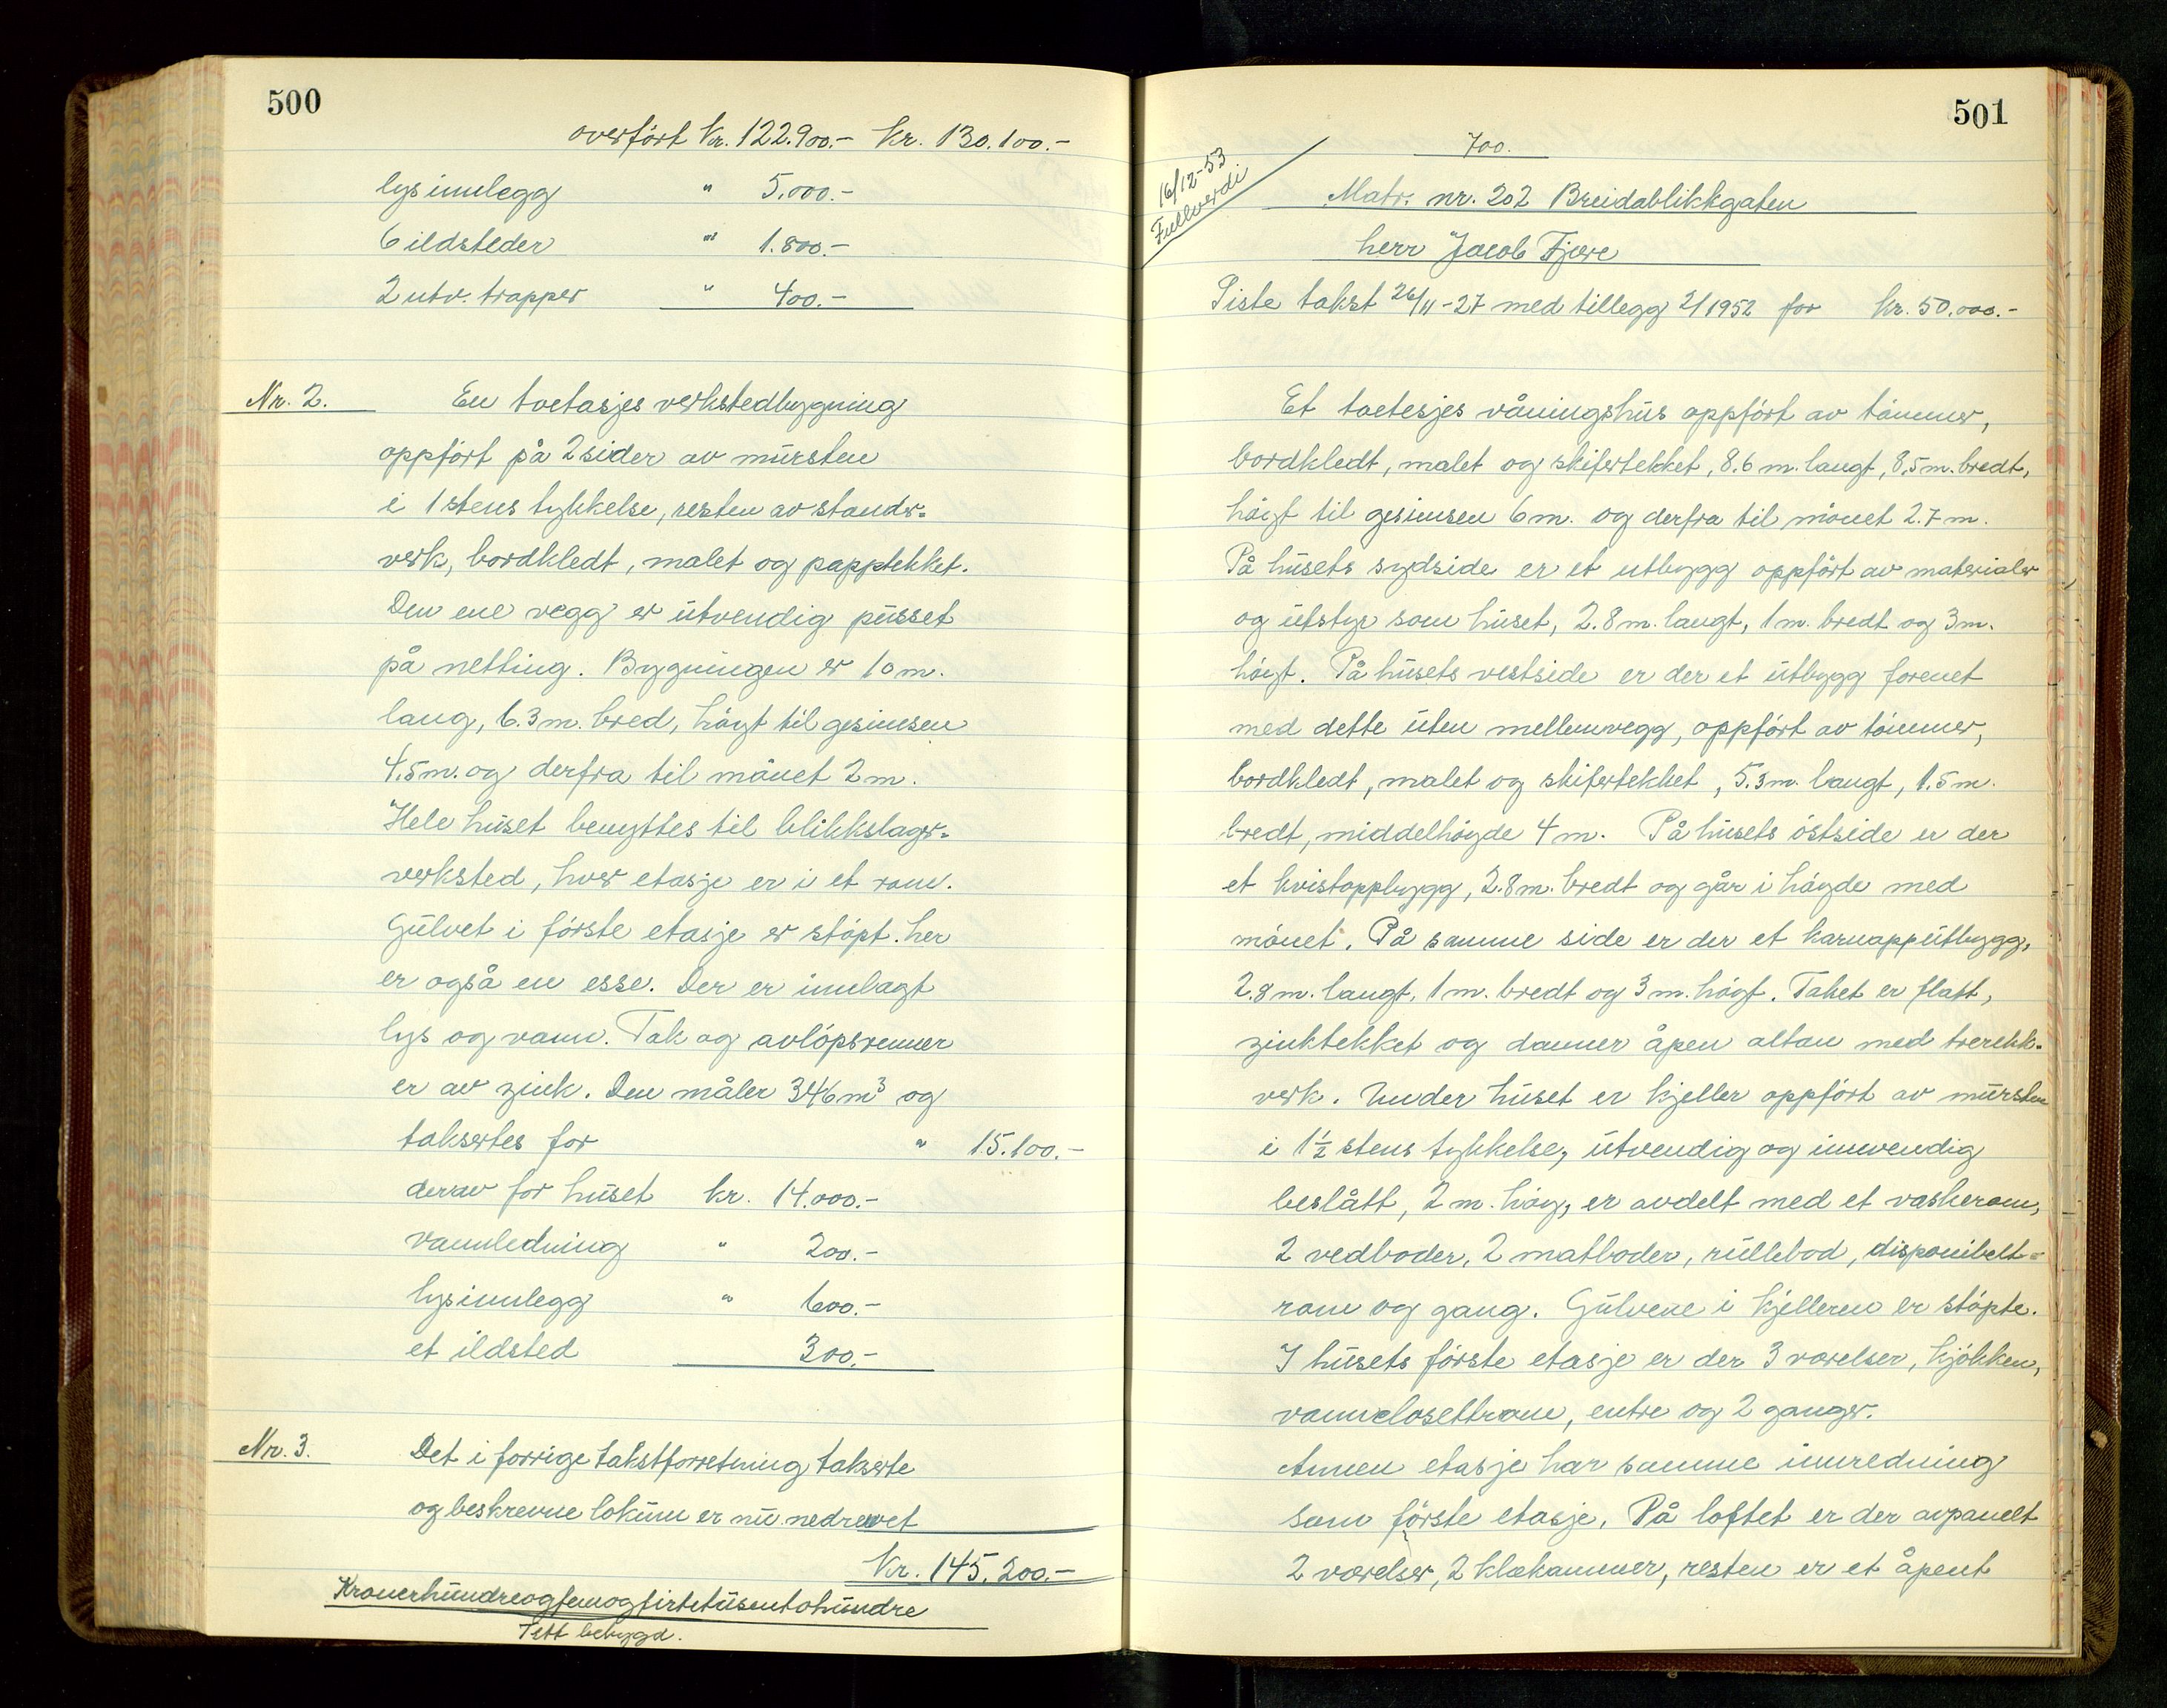 500
overført kr. 122.900.- kr. 130.100.-
lysinnlegg " 5.000.-
6 ildsteder " 1.800.-
2 utv. trapper " 400.-
Nr. 2. En toetasjes verkstedbygning
oppført på 2 sider av mursten
i 1 stens tykkelse, resten av stender=
verk, bordkledt, malet og papptekket.
Den ene vegg er utvendig pusset
på netting. Bygningen er 10 m.
lang, 6.3 m. bred, høgt til gesimsen
4.5 m. og derfra til mønet 2 m.
Hele huset benyttes til blikkslager=
verksted, hver etasje er i et rom.
Gulvet i første etasje er støpt. her
er også en esse. Der er innlagt
lys og vann. Tak og avløpsrenner
er av zink. Den måler 346 m³ og
takseres for " 15.100.-
derav for huset kr. 14.000.-
vannledning " 200.-
lysinnlegg " 600.-
et ildsted 300.-
Nr. 3. Det i forrige takstforretning takserte
og beskrevne lokum er nu nedrevet
Kr. 145.200.-
Kronerhundreogfemogfirtitusentohundre
Tett bebygd.
501
700.
16/12-53
Fullverdi
Matr. nr. 202 Breidablikkgaten
herr Jacob Fjære
Siste takst 26/11-27 med tillegg 2/1952 for kr. 50.000.-
Et toetesjes våningshus oppført av tømmer,
bordkledt, malet og skifertekket, 8.6 m. langt, 8.5 m. bredt,
høgt til gesimsen 6 m. og derfra til mønet 2.7 m.
På husets sydside er et utbygg oppført av materialer
og utstyr som huset, 2.8 m. langt, 1 m. bredt og 3 m.
høgt. På husets vestside er der et utbygg forenet
med dette uten mellemvegg, oppført av tømmer,
bordkledt, malet og skifertekket, 5.3 m. langt, 1.5 m.
bredt, middelhøgde 4 m. På husets østside er der
et kvistoppbygg, 2.8 m. bredt og går i høgde med
mønet. På samme side er der et karnapputbygg,
2.8 m. langt, 1 m. bredt og 3 m. høgt. Taket er flatt,
zinktekket og danner åpen altan med trerekk=
verk. Under huset er kjeller oppført av mursten
i 1½ stens tykkelse, utvendig og innvendig
beslått, 2 m. høg, er avdelt med et vaskerom,
2 vedboder, 2 matboder, rullebod, disponibelt=
rom og gang. Gulvene i kjelleren er støpte.
I husets første etasje er der 3 værelser, kjøkken,
vannclosettrom, entre og 2 ganger.
Annen etasje har samme innredning
som første etasje. På loftet er der avpanelt
2 værelser, 2 klækammer, resten er et åpent